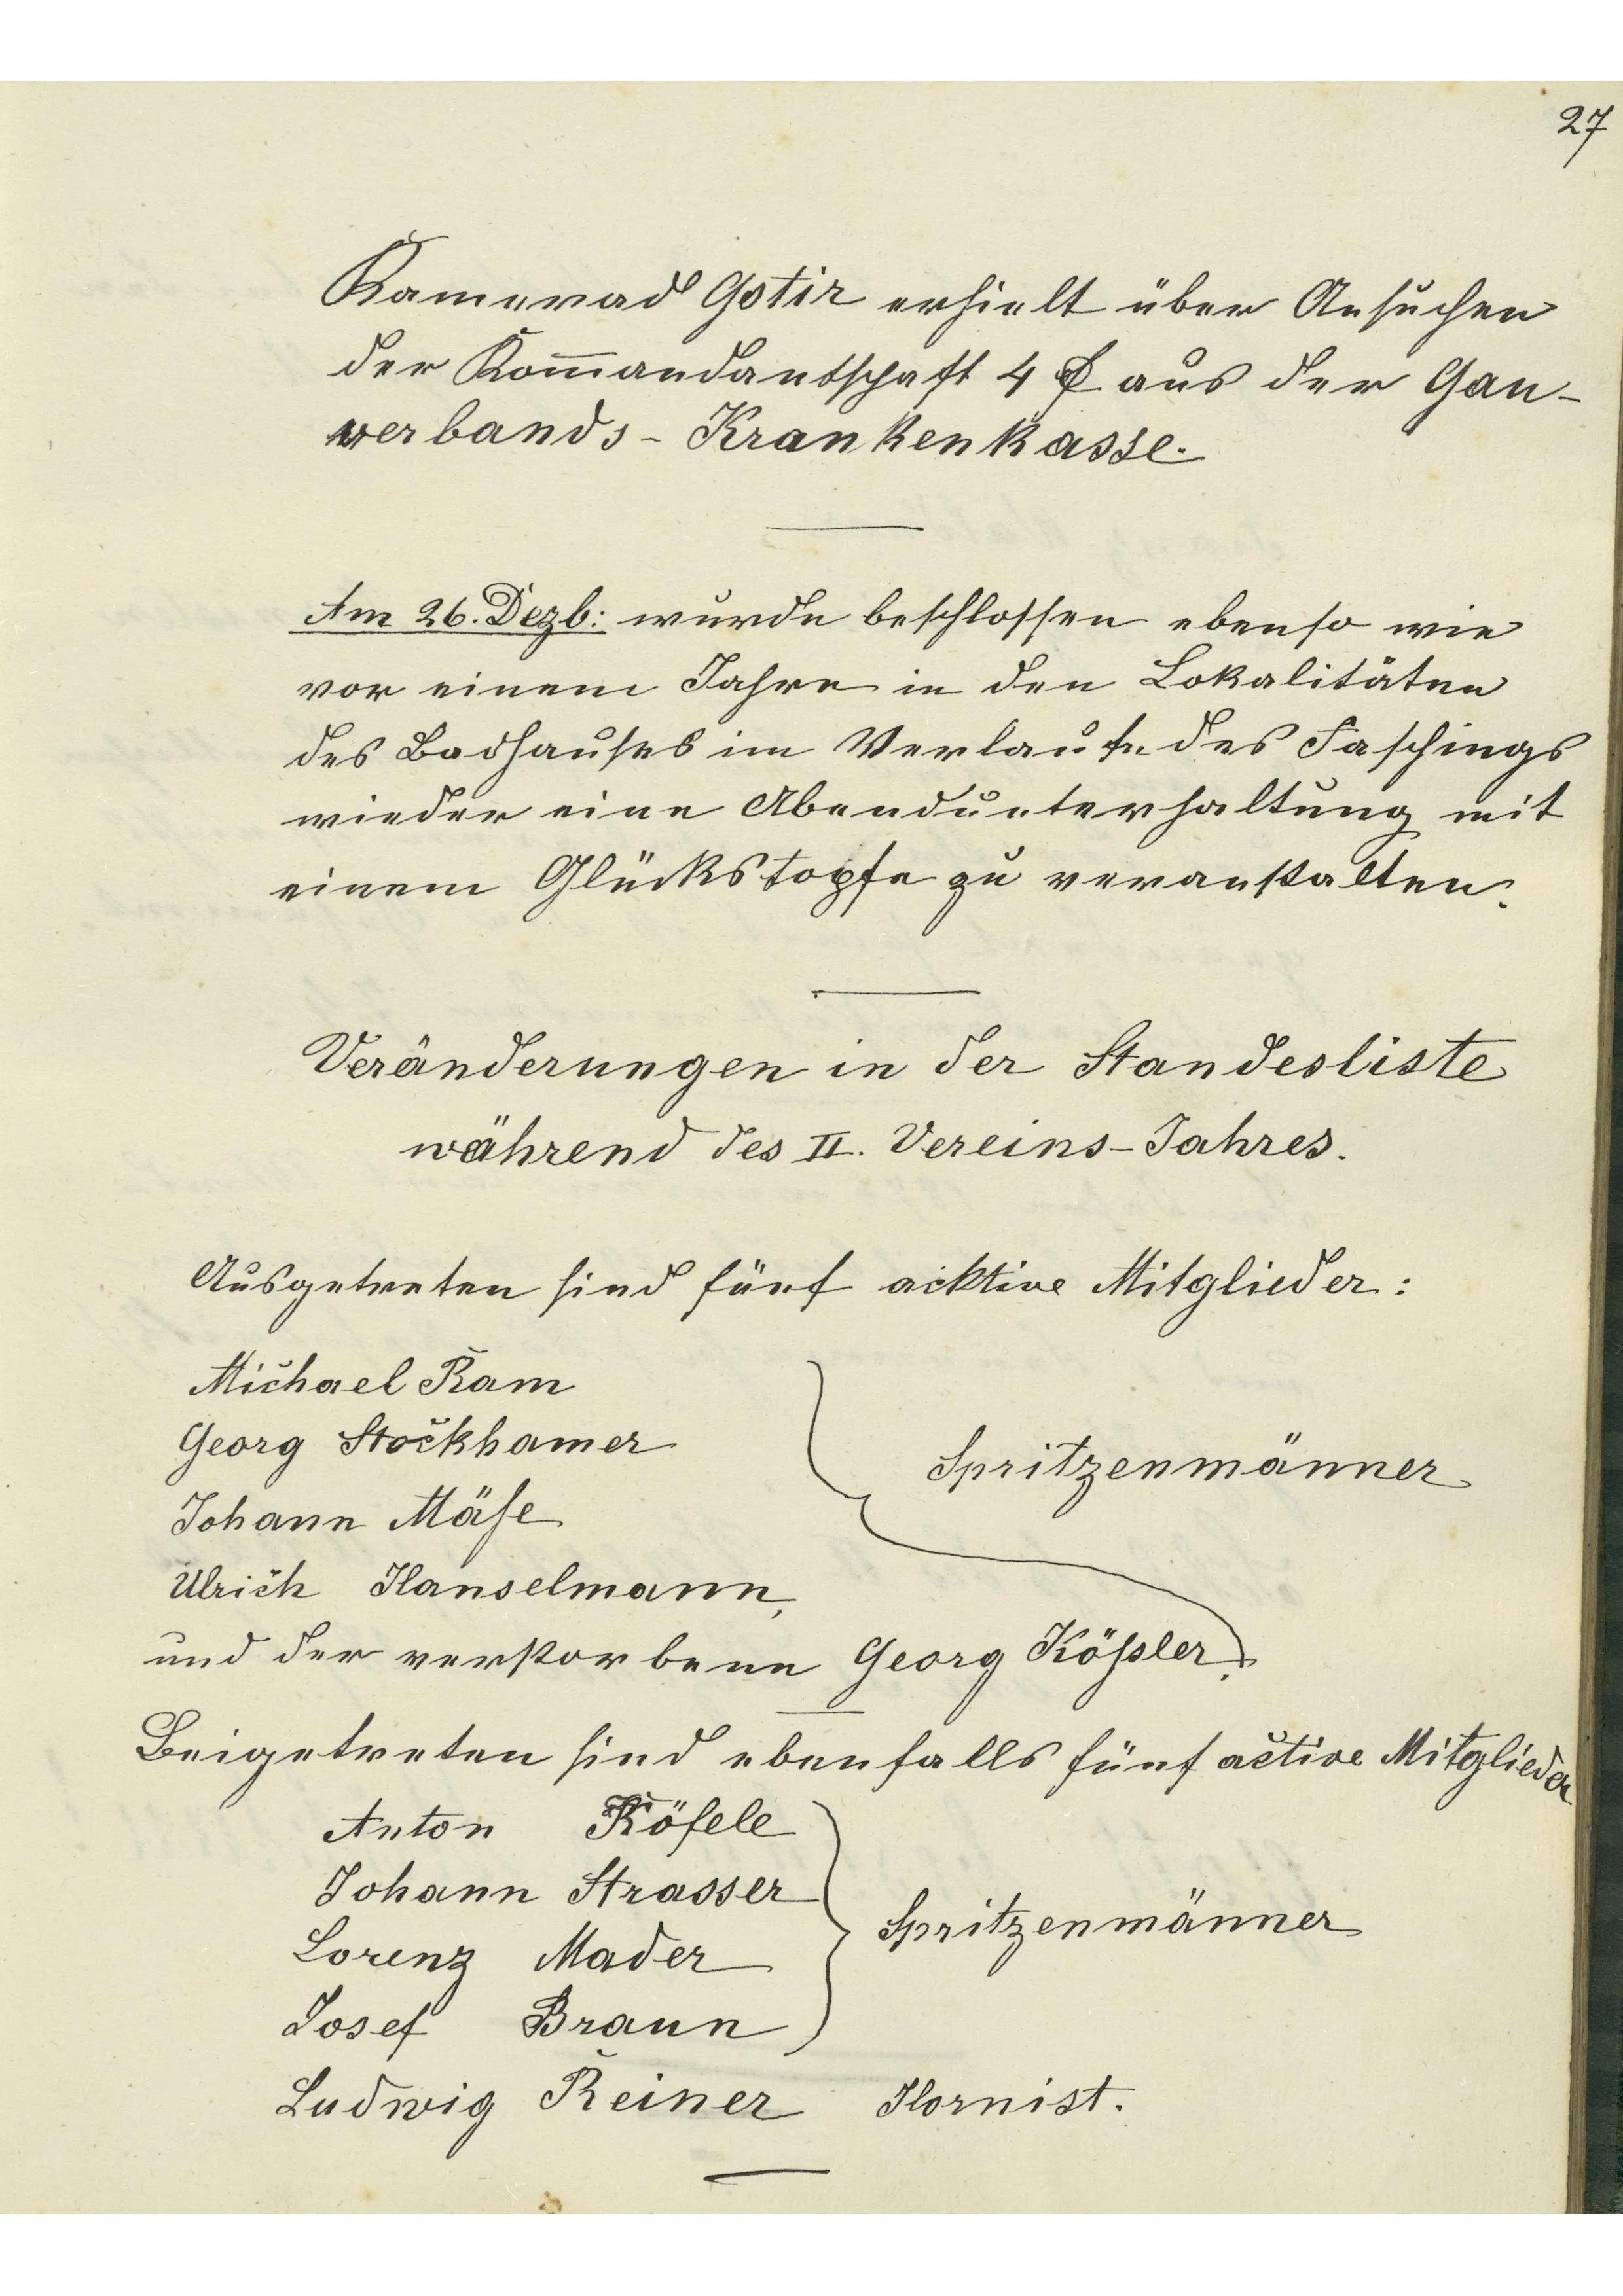 27
Kamerad Gstir erhielt über Ansuchen
der Kom̅andantschaft 4 f aus der Gau-
verbands-Krankenkasse.
Am 26. Dezb: wurde beschlossen ebenso wie
vor einem Jahre in den Lokalitäten
des Badhauses im Verlaufe des Faschings
wieder eine Abendunterhaltung mit
einem Glückstopfe zu veranstalten.
Veränderungen in der Standesliste
während des II. Vereins-Jahres.
Ausgetreten sind fünf acktive Mitglieder:
Michael Ram
Georg Stockhamer
Johann Mäse
Spritzenmänner
Ulrich Hanselmann,
und der verstorbene Georg Kößler.
Beigetreten sind ebenfalls fünf active Mitglieder
Anton Köfele
Johann Strasser
Lorenz Mader
Spritzenmänner
Josef Braun
Ludwig Reiner Hornist.